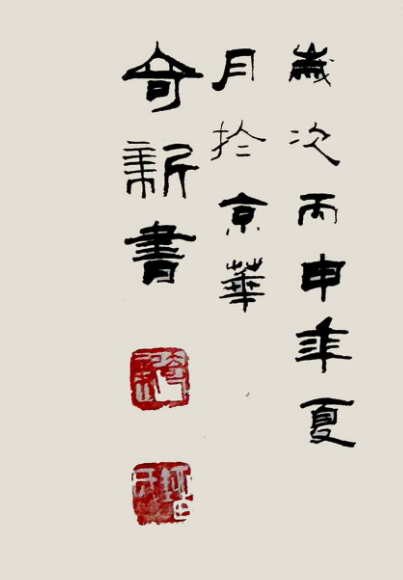 歲次丙申年夏
月於京華
奇新書